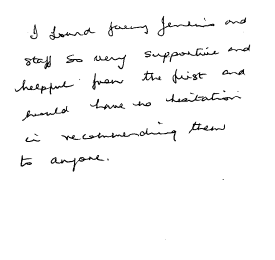 I found Jenny Jenkins and
staff so very supportive and
helpful from the first and
would have no hesitation
in recommending them
to anyone.